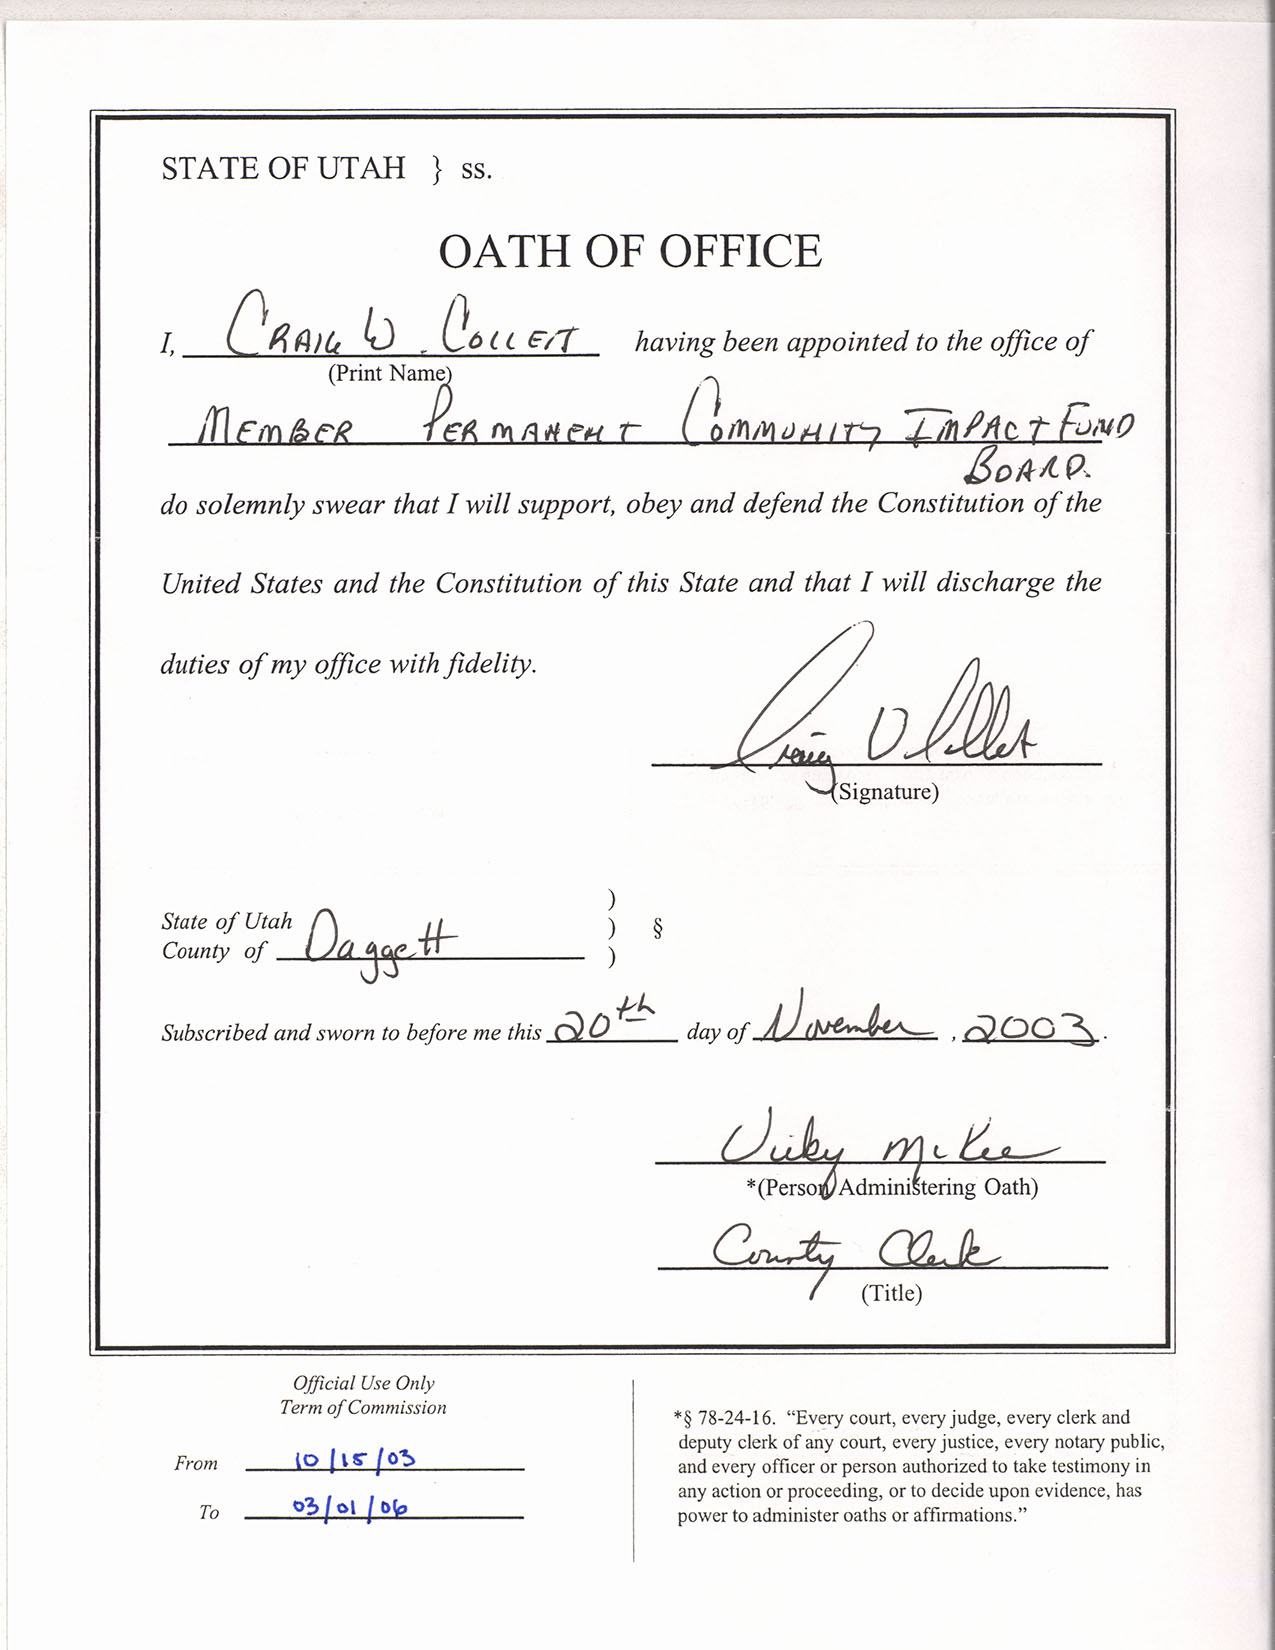 STATE OF UTAH } ss.
OATH OF OFFICE
I, CRAIG W. COLLETT having been appointed to the office of
(Print Name)
MEMBER PERMANENT COMMUNITY IMPACT FUND
BOARD.
do solemnly swear that I will support, obey and defend the Constitution of the
United States and the Constitution of this State and that I will discharge the
duties of my office with fidelity.
Craig W Collett
(Signature)
)
State of Utah ) §
County of Daggett )
Subscribed and sworn to before me this 20th day of November, 2003.
Vicky McKee
*(Person Administering Oath)
County Clerk
(Title)
Official Use Only
Term of Commission
From 10/15/03
To 03/01/06
*§ 78-24-16. “Every court, every judge, every clerk and
deputy clerk of any court, every justice, every notary public,
and every officer or person authorized to take testimony in
any action or proceeding, or to decide upon evidence, has
power to administer oaths or affirmations.”